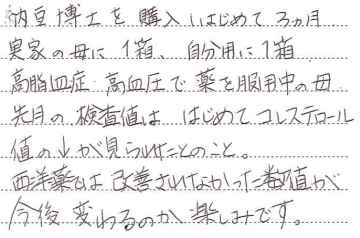 納豆博士を購入しはじめて3ヵ月
実家の母に1箱、自分用に1箱
高脂血症 高血圧で薬を服用中の母
先月の検査値は はじめてコレステロール
値の↓が見られたとのこと。
西洋薬では改善されなかった数値が
今後変わるのか楽しみです。